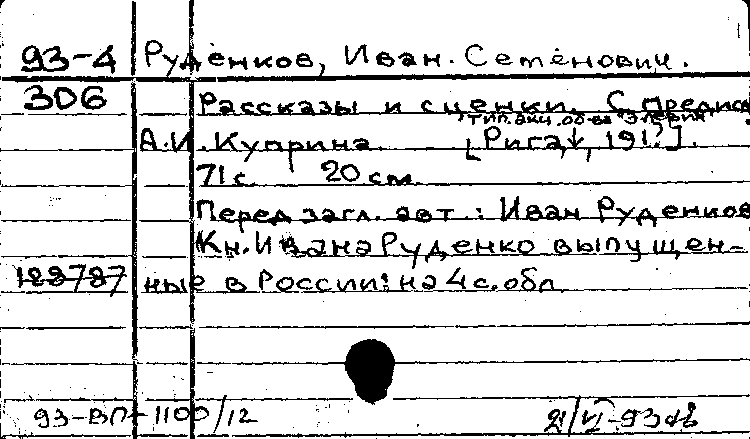 93-4 Руденков, Иван Семёнович.
306 Рассказы и сценки. С предисл.
тип. акц. об-ва "Элевин"
А.И. Куприна [Рига, ↓, 191?].
71 с. 20 см.
Перед загл. авт.: Иван Руденков
Кн. Ивана Руденко выпущен-
188787 ные в России: на 4 с. обл.
93-ВП-1100/12 21/VI-93